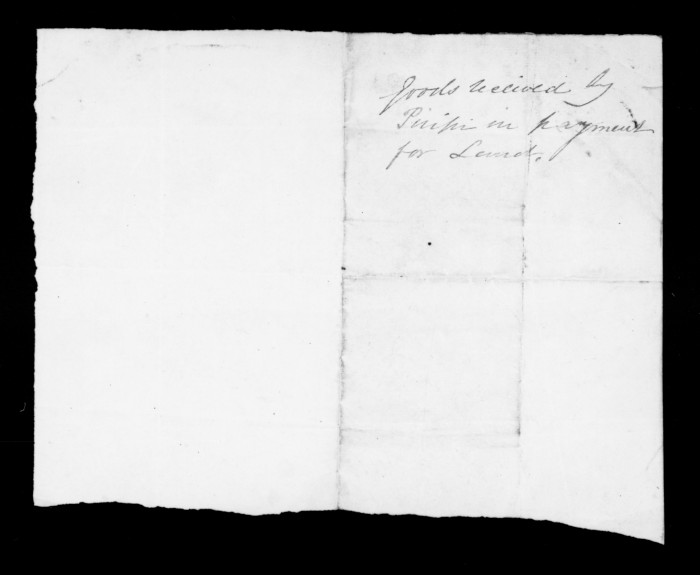 Goods received by
Piripi in payment
for Land.